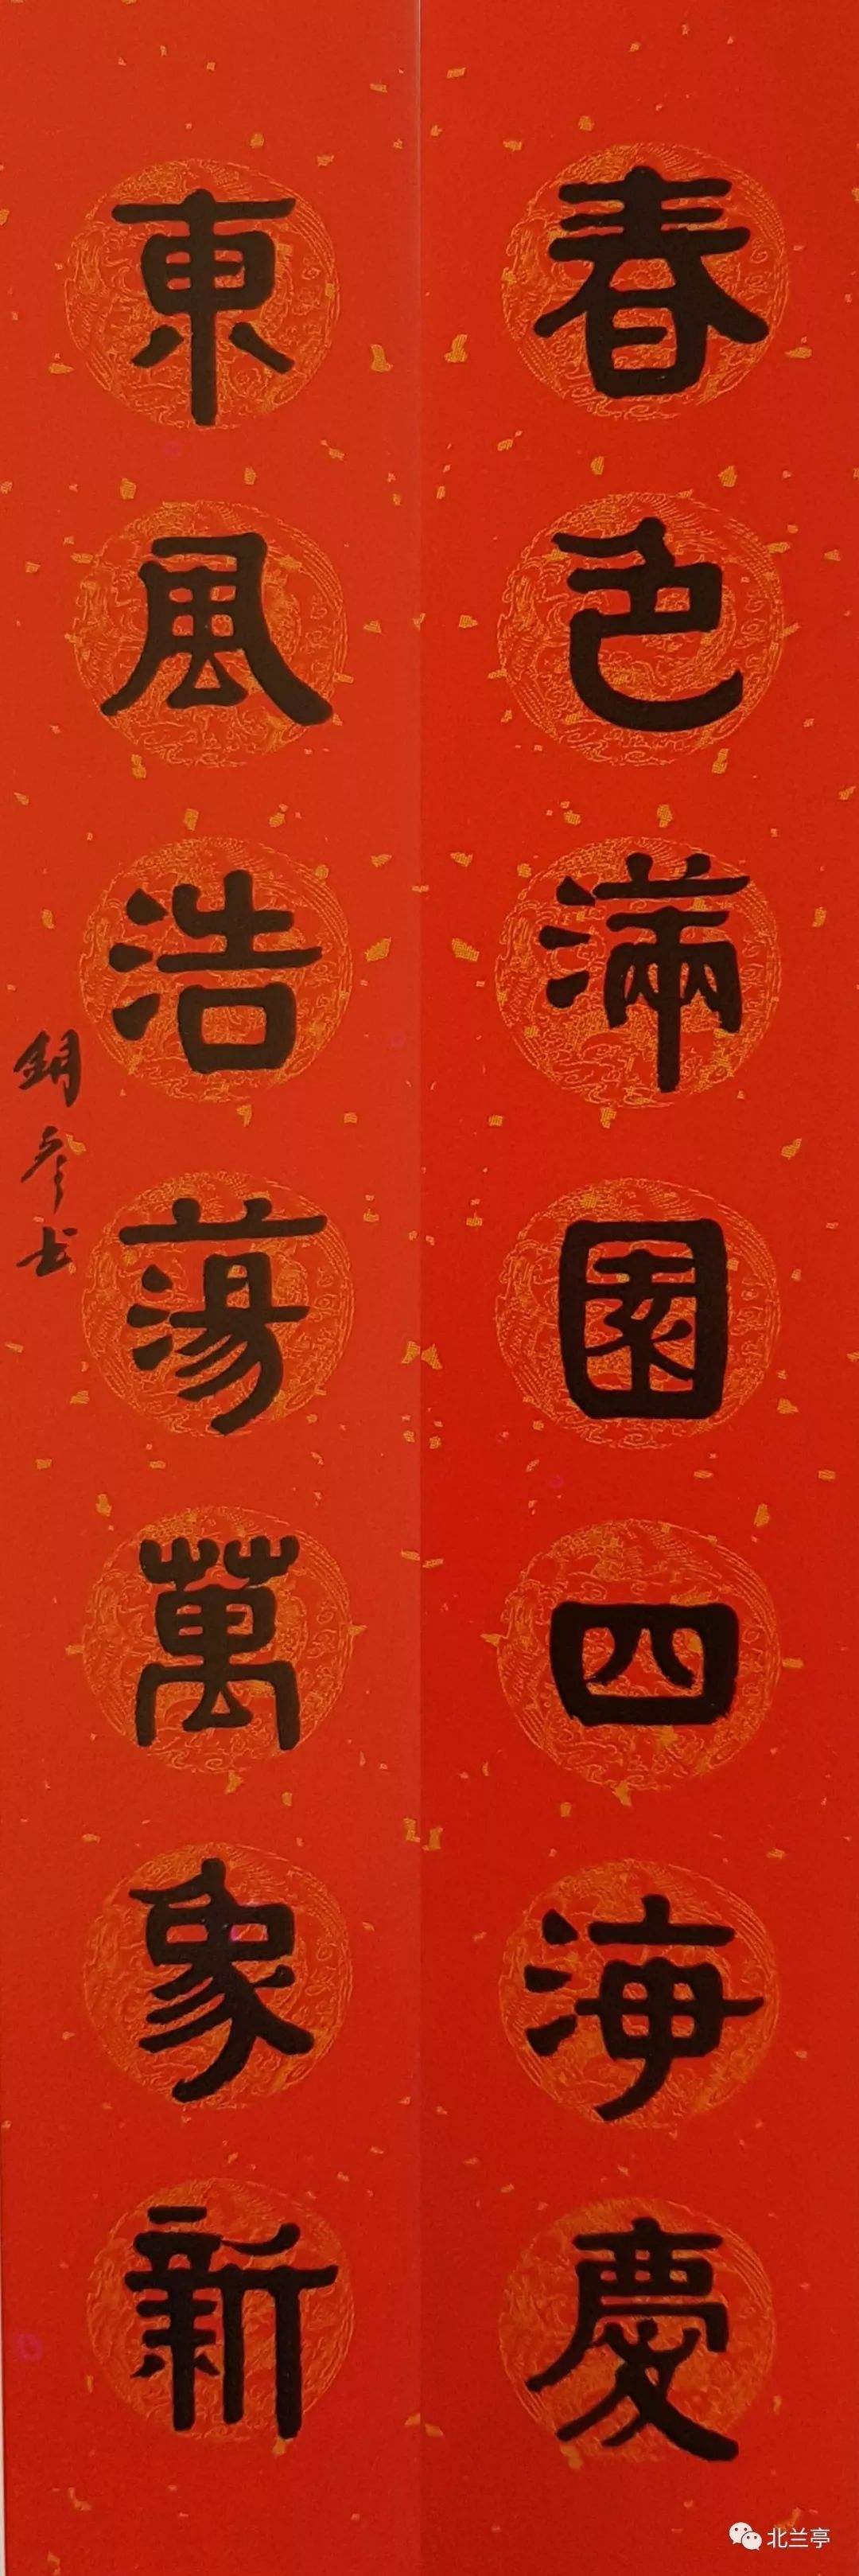 春色滿園四海慶
東風浩蕩萬象新
北兰亭